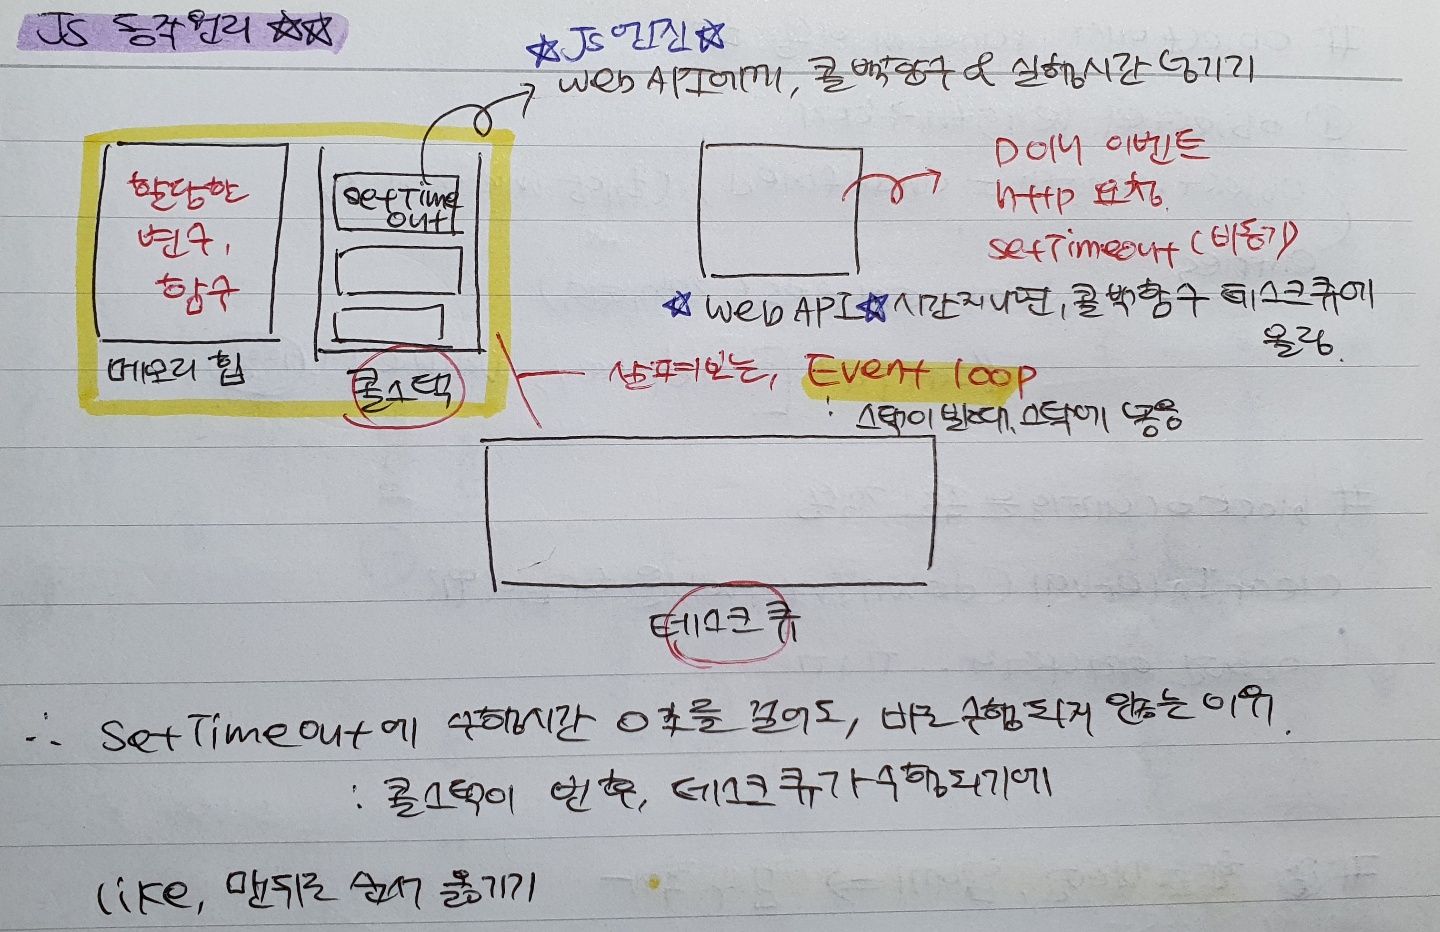 JS 동작원리 ☆☆
☆JS 엔진☆
web API에게, 콜백함수 & 실행시간 넘기기
할당한
변수,
함수
setTime
out
메모리 힙
콜스택
DOM 이벤트
http 요청
setTimeout (비동기)
☆ web API☆ 시간지나면, 콜백함수 테스크큐에
올림.
살펴보는, Event loop
: 스택이 빌때, 스택에 넣음
테스크 큐
∴ SetTimeout에 수행시간 0초를 걸어도, 바로 수행되지 않는 이유.
: 콜스택이 빈 후, 테스크 큐가 수행되기에
like, 맨뒤로 순서 옮기기